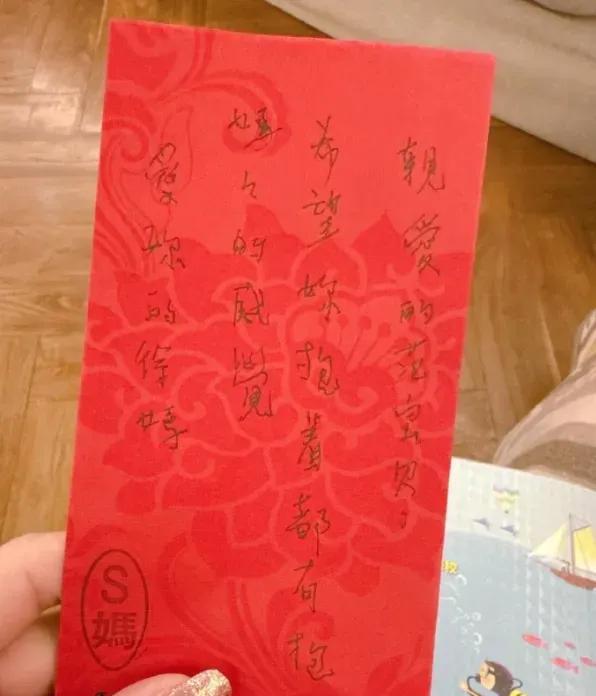 親愛的范宝貝：
希望妳抱著都有抱
媽々的感覺
愛妳的徐媽
S
媽